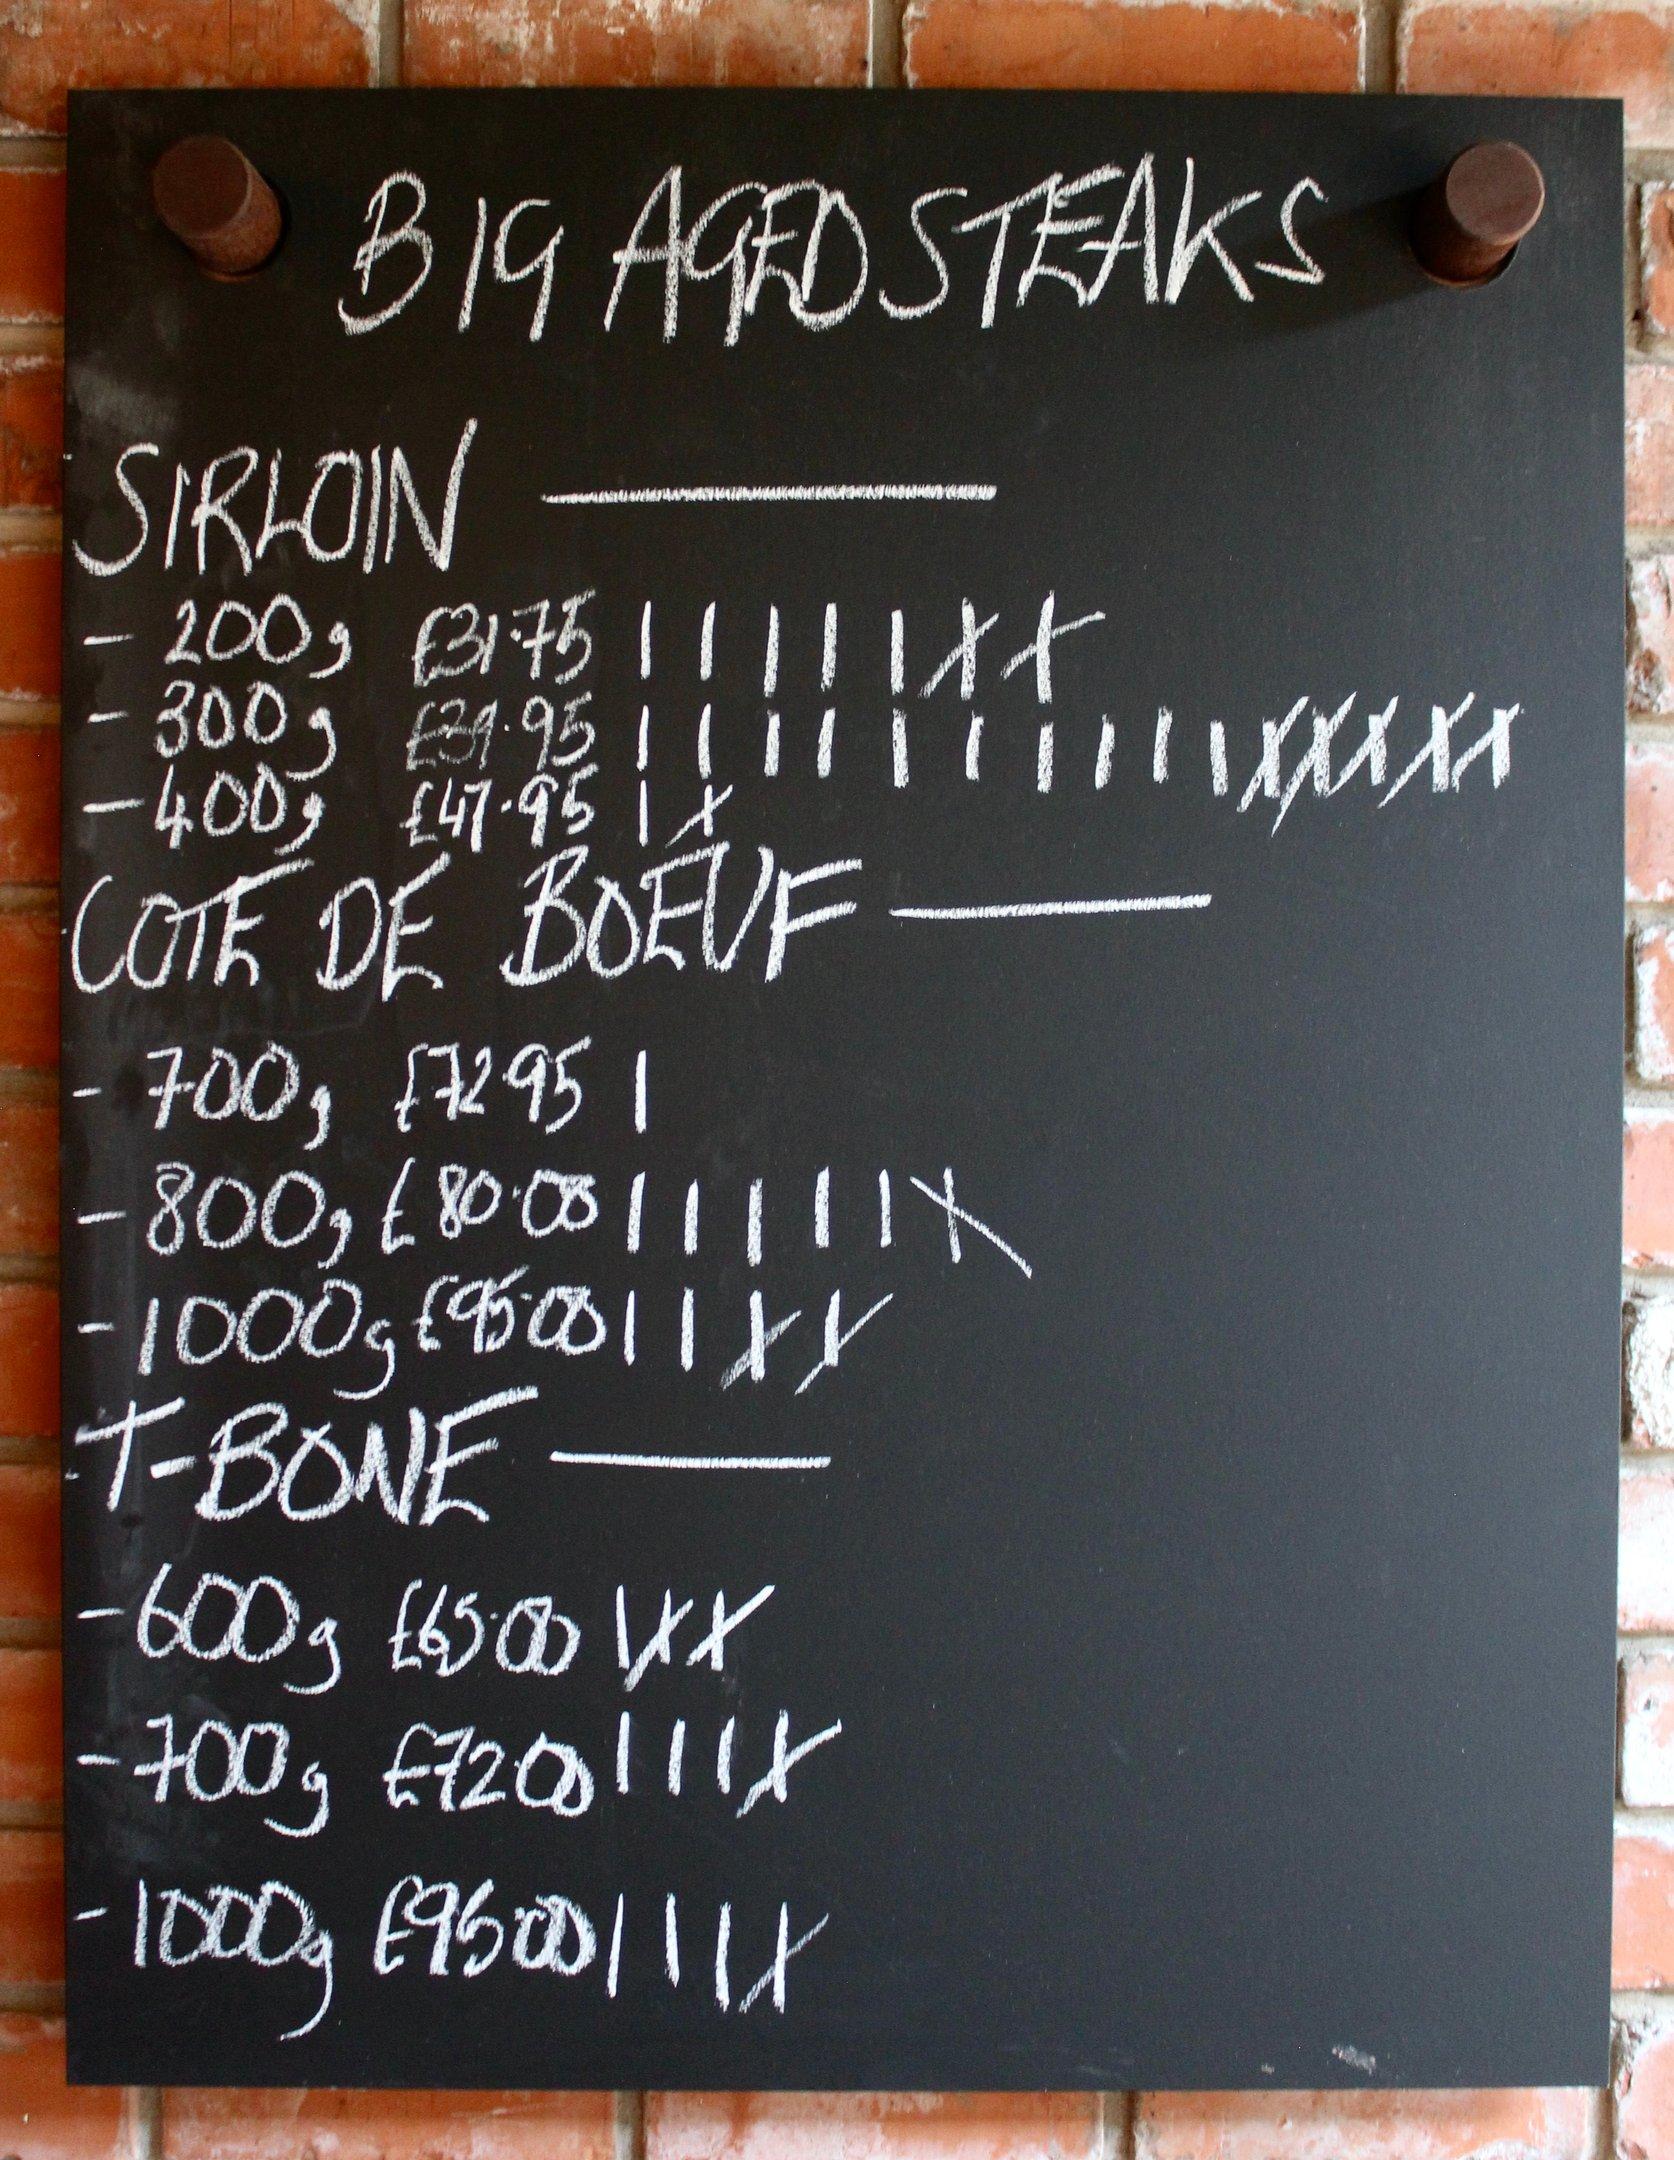 BIG AGED STEAKS
SIRLOIN
- 200g £31.75
- 300g £39.95
- 400g £47.95
COTE DE BOEUF
- 700g £72.95
- 800g £80.00
- 1000g £95.00
T-BONE
- 600g £65.00
- 700g £72.00
- 1000g £95.00